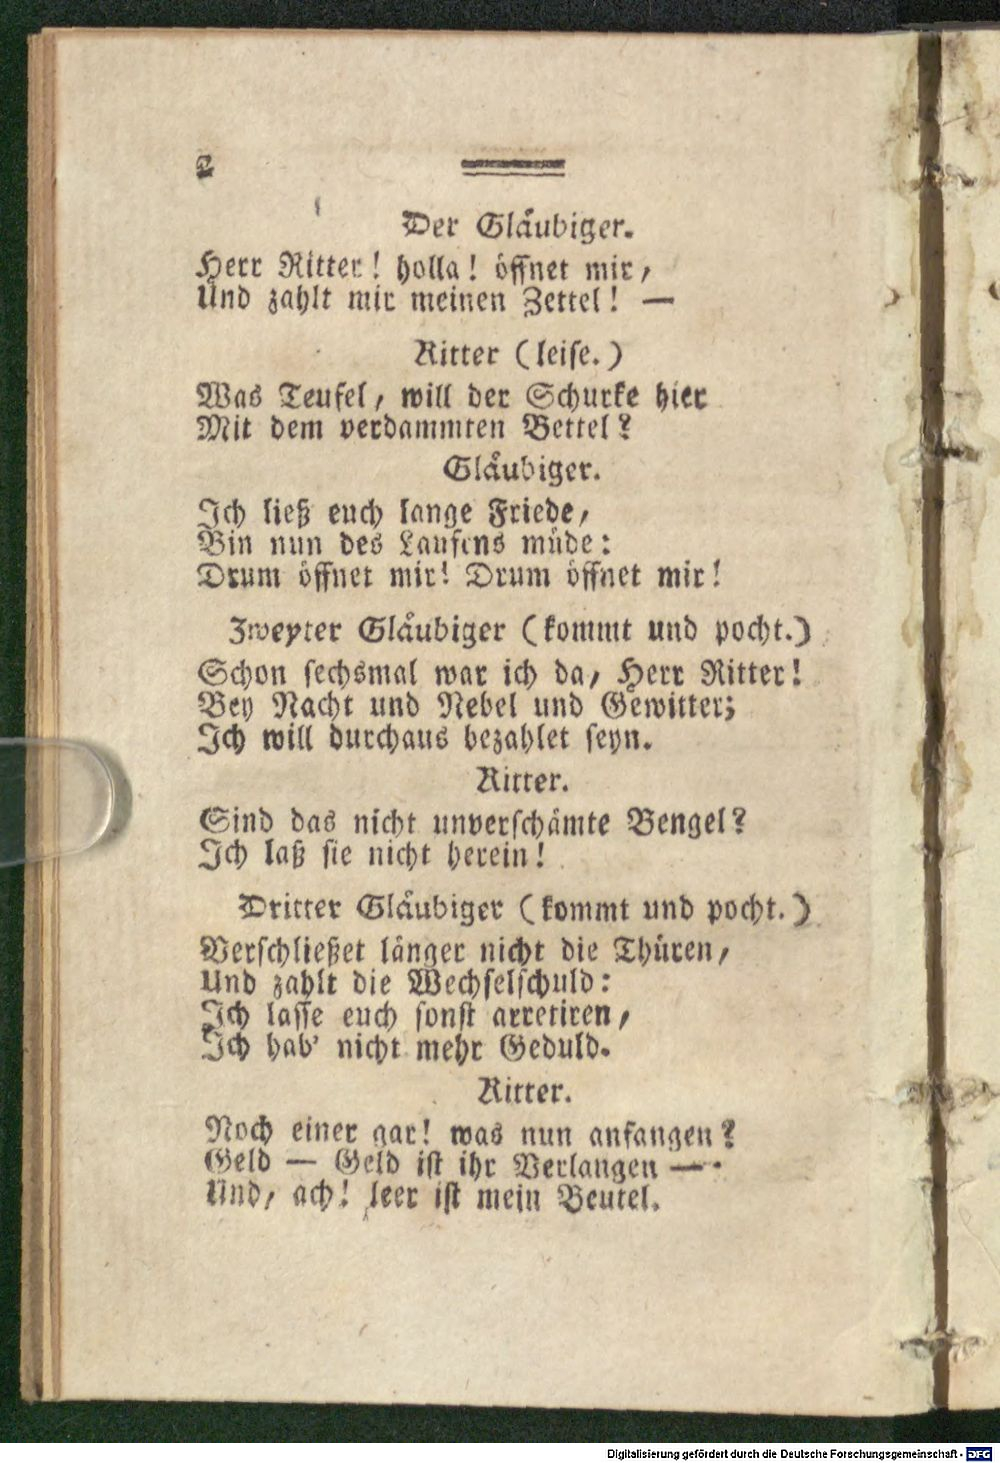 2
Der Gläubiger.
Herr Ritter! holla! öffnet mir,
Und zahlt mir meinen Zettel! —
Ritter (leise.)
Was Teufel, will der Schurke hier
Mit dem verdammten Bettel?
Gläubiger.
Ich ließ euch lange Friede,
Bin nun des Laufens müde:
Drum öffnet mir! Drum öffnet mir!
Zweyter Gläubiger (kommt und pocht.)
Schon sechsmal war ich da, Herr Ritter!
Bey Nacht und Nebel und Gewitter;
Ich will durchaus bezahlet seyn.
Ritter.
Sind das nicht unverschämte Bengel?
Ich laß sie nicht herein!
Dritter Gläubiger (kommt und pocht.)
Verschließet länger nicht die Thüren,
Und zahlt die Wechselschuld:
Ich lasse euch sonst arretiren,
Ich hab' nicht mehr Geduld.
Ritter.
Noch einer gar! was nun anfangen?
Geld — Geld ist ihr Verlangen —
Und, ach! leer ist mein Beutel.
Digitalisierung gefördert durch die Deutsche Forschungsgemeinschaft - DFG